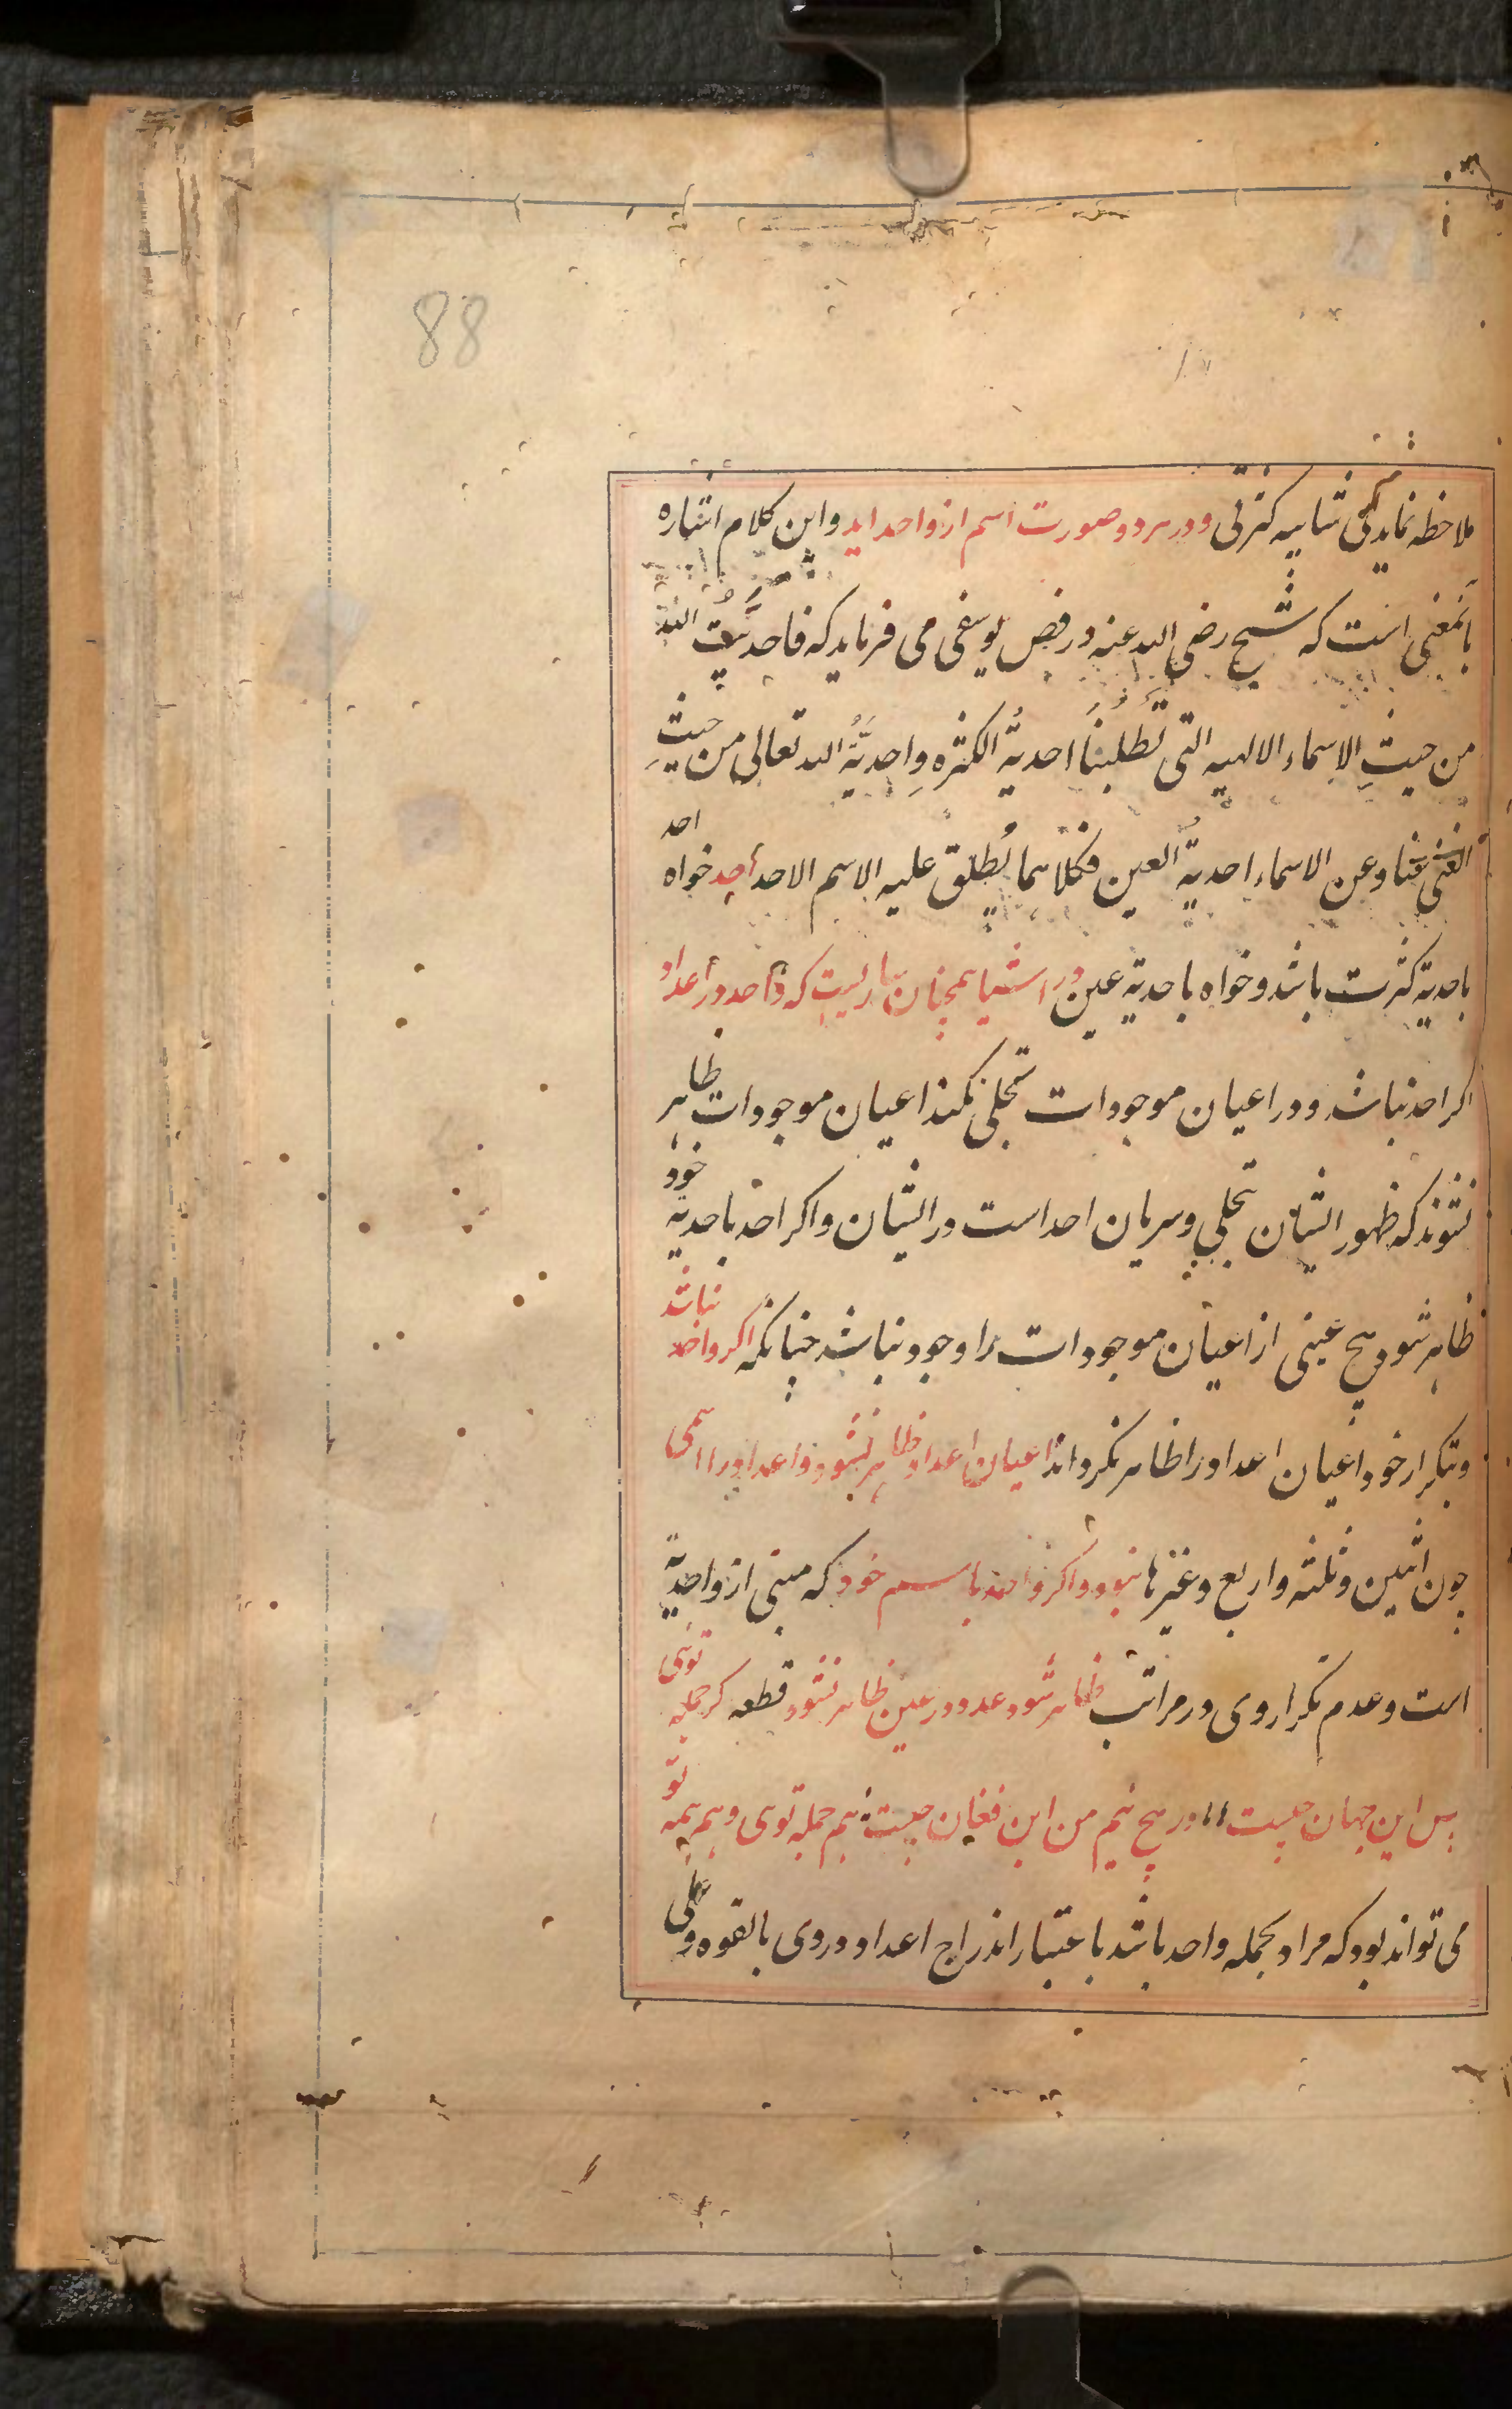 88
ملاحظه نمایدگی شایبه کثرتی ودر هر دو صورت اسم از واحد اید واین کلام اشاره
بانمعنی است که شیخ رضی الله عنه در فص یوسفی می فرماید که فاحدیّتُ الله
من حیثِ الاسماء الالهیه التی تَطلُبنَا احدیةُ الکثره واحدیَّةُ الله تعالی من حیثِ
الغنی عنا وعن الاسماء احدیةُ العین فکلاهما یُطلق علیه الاسم الاحد احد خواه
باحدیة کثرت باشد وخواه باحدیة عین در اشیا همچنان ساریست که واحد در اعداد
اکر احد نباشد ودر اعیان موجودات تجلی نکند اعیان موجودات ظاهر
نشوند که ظهور ایشان تجلی وسریان احد است در ایشان واکر احد باحدیة خود
ظاهر شود هیچ عینی از اعیان موجودات را وجود نباشد چنانکه اکر واحد نباشد
وبتکرار خود اعیان اعداد را ظاهر نکرداند اعیان اعداد ظاهر نشود واعداد را اسمی
چون اثنین وثلثه واربع وغیرها نبود واکر واحد باسم خود که مبنی از واحدیة
است وعدم تکرار وی در مراتب ظاهر شود عدد در عین ظاهر نشود قطعه کر جمله توئی
پس این جهان چیست ،، ور هیچ نیم من این فغان چیست هم جمله توی وهم همه تو
می تواند بود که مراد بجمله واحد باشد باعتبار اندراج اعداد در وی بالقوه